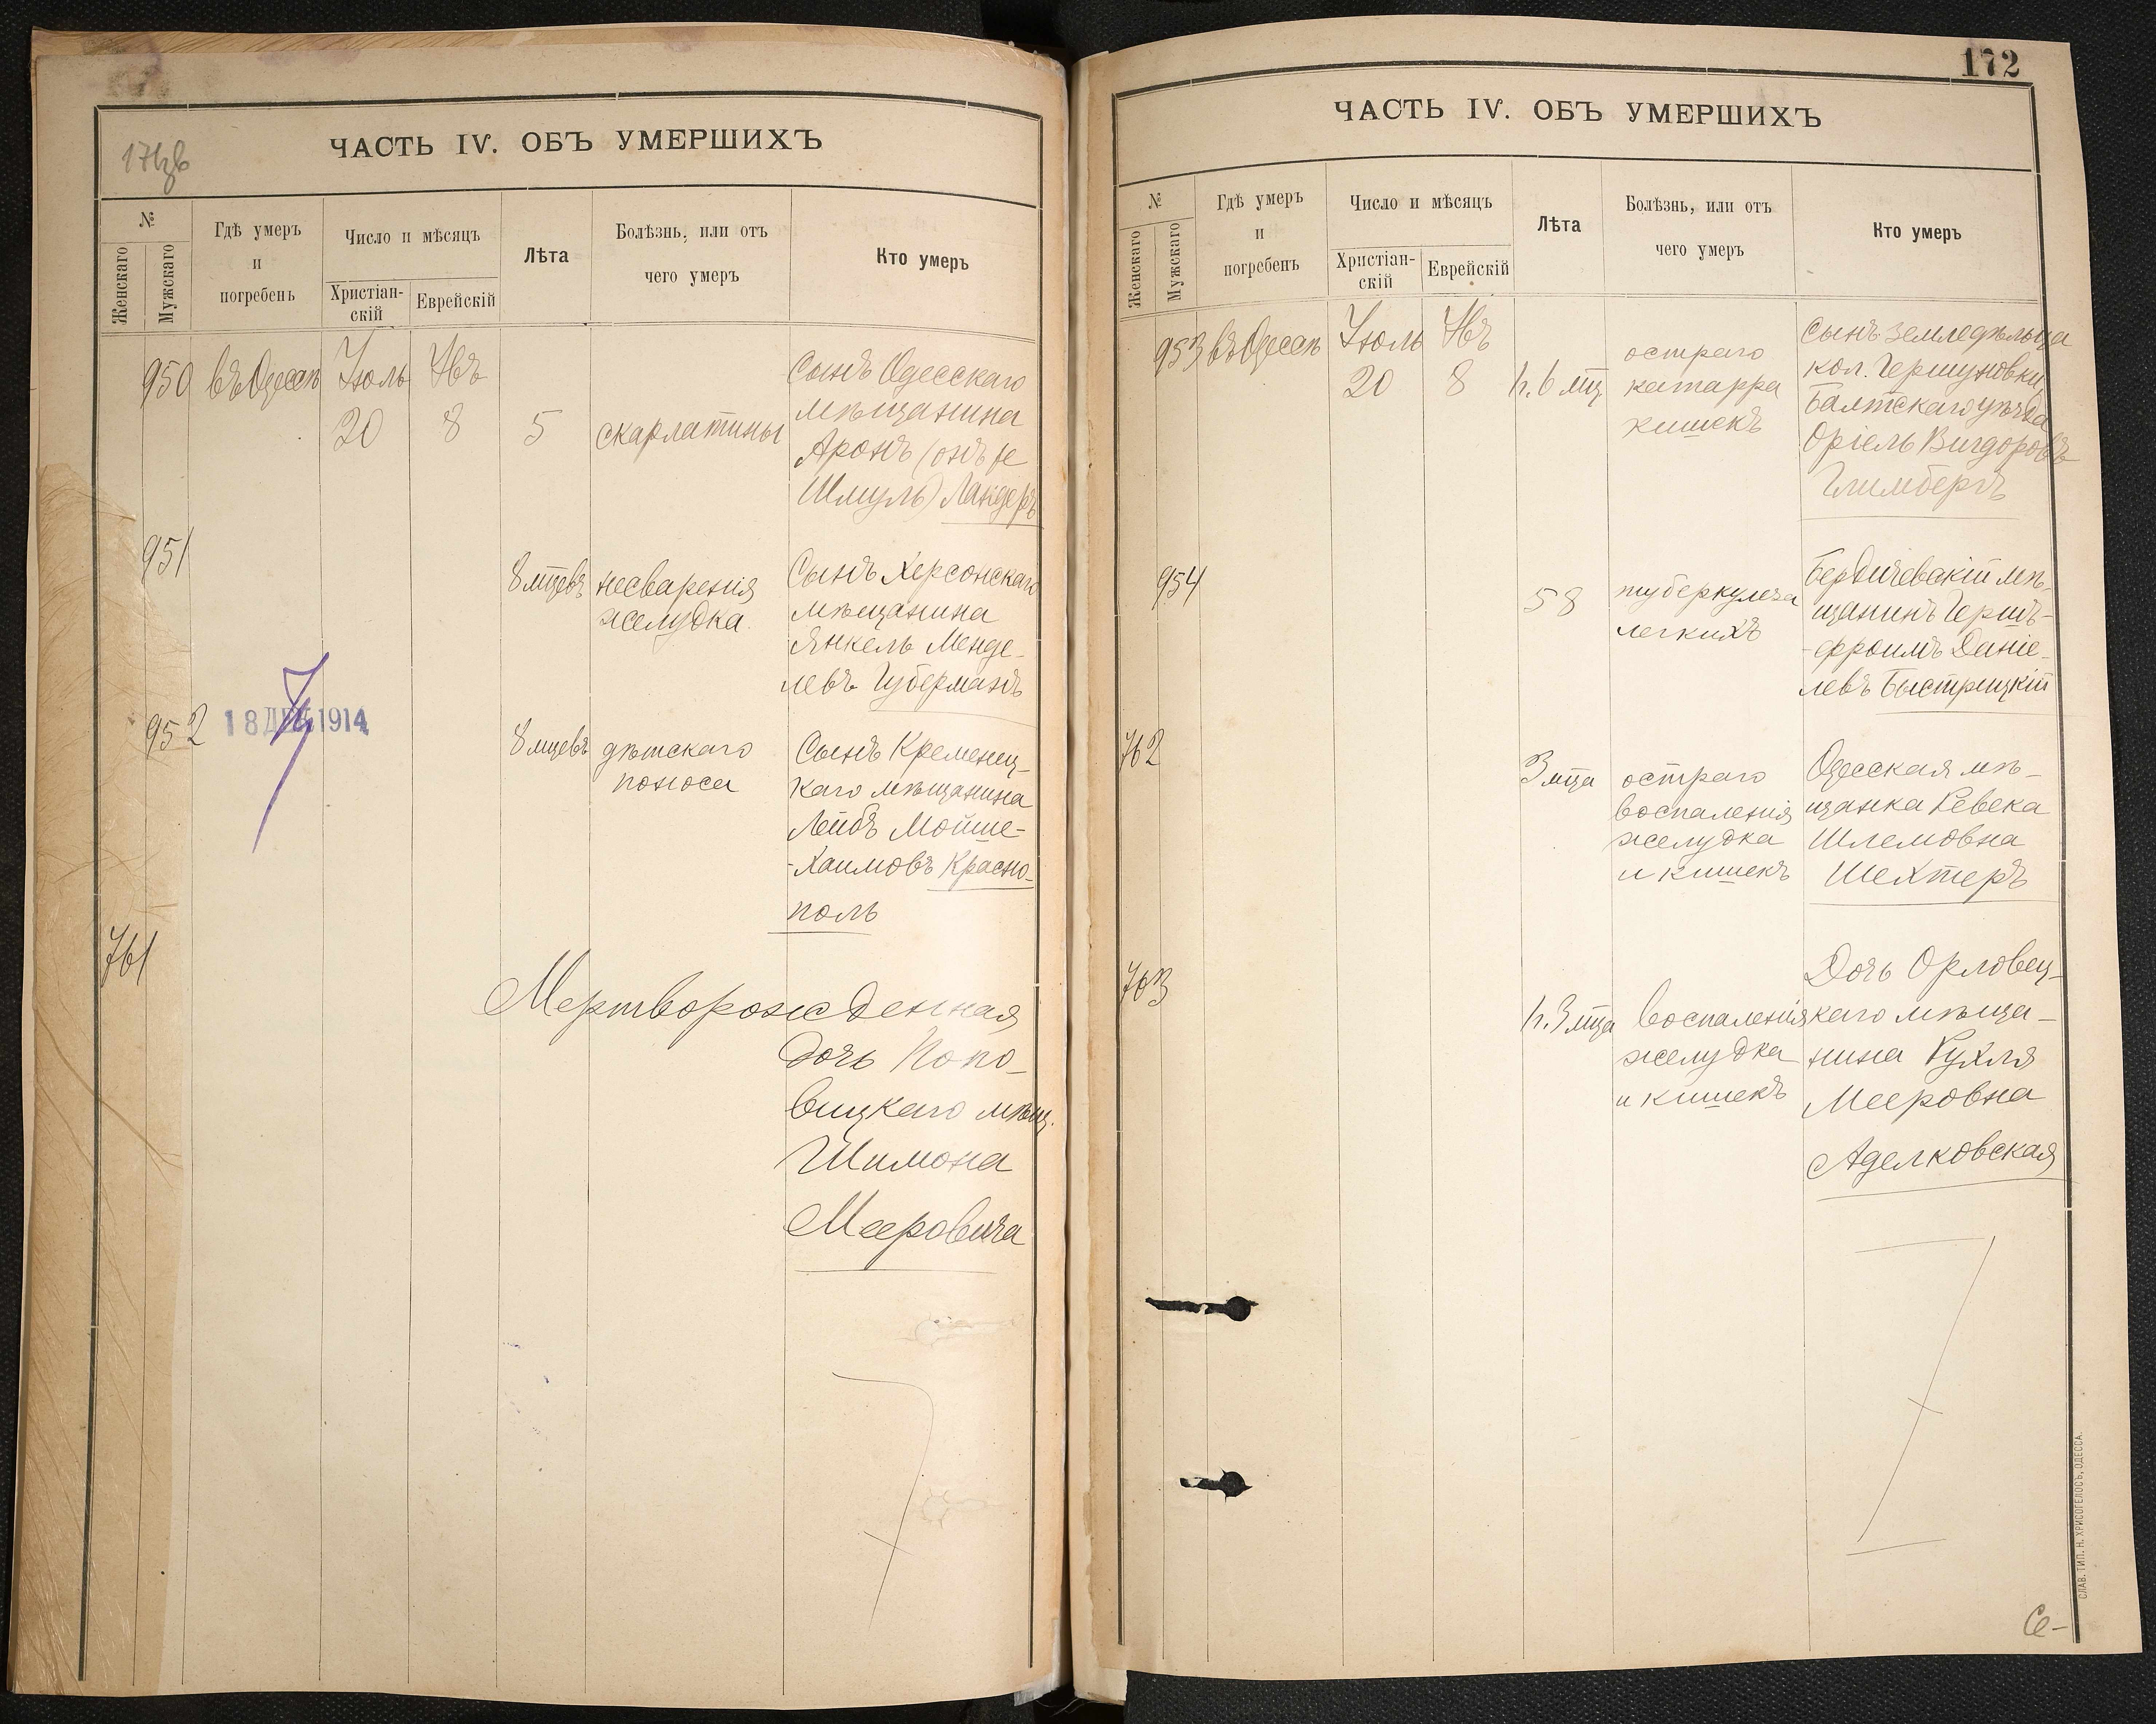 171об
ЧАСТЬ IV. ОБЪ УМЕРШИХЪ
№
Женскаго
Мужскаго
Гдѣ умеръ
и
погребенъ
Число и мѣсяцъ
Христіан-
скій
Еврейскій
Лѣта
Болѣзнь, или отъ
чего умеръ
Кто умеръ
950 въ Одессѣ Іюль Авъ
20 8 5 скарлатины
Сынъ Одесскаго
мѣщанина
Аронъ (онъ же
Шмуль) Ландеръ
951
8 мцевъ несваренія
желудка.
Сынъ Херсонскаго
мѣщанина
Янкель Менде-
левъ Губерманъ
952 18 ДЕК 1914
8 мцевъ дѣтскаго
поноса
Сынъ Кременец-
каго мѣщанина
Лейбъ Мойше-
-Хаимовъ Красно-
поль
761
Мертворожденная
дочь Попо-
вицкаго мѣщ.
Шимона
Мееровича
172
ЧАСТЬ IV. ОБЪ УМЕРШИХЪ
№
Женскаго
Мужскаго
Гдѣ умеръ
и
погребенъ
Число и мѣсяцъ
Христіан-
скій
Еврейскій
Лѣта
Болѣзнь, или отъ
чего умеръ
Кто умеръ
953 въ Одессѣ Іюль Авъ
20 8 1 г. 6 мц
остраго
катарра
кишекъ
Сынъ земледѣльца
кол. Гершуновки
Балтскаго уѣзда
Оріель Вигдоровъ
Глимбергъ
954
58 туберкулеза
легкихъ
Бердичевскій мѣ-
щанинъ Гершъ-
-фроимъ Даніе-
левъ Быстрицкій
762
3 мца остраго
воспаленія
желудка
и кишекъ
Одесская мѣ-
щанка Ревека
Шлемовна
Шехтеръ
763
1 г. 3 мца воспаленія
желудка
и кишекъ
Дочь Орловец-
каго мѣща-
нина Рухля
Мееровна
Аделковская
Се-
СЛАВ. ТИП. Н. ХРИСОГЕЛОСЪ, ОДЕССА.